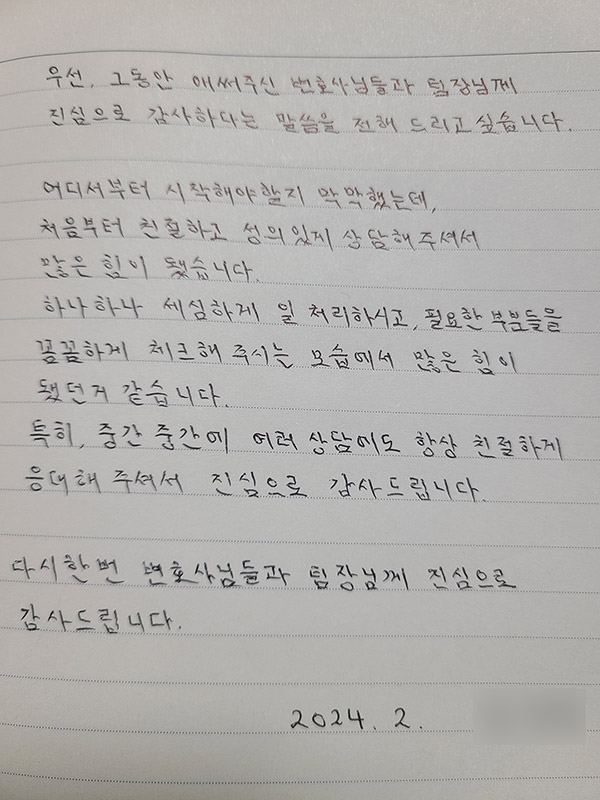 우선, 그동안 애써주신 변호사님들과 팀장님께
진심으로 감사하다는 말씀을 전해 드리고 싶습니다.
어디서부터 시작해야할지 막막했는데,
처음부터 친절하고 성의있게 상담해주셔서
많은 힘이 됐습니다.
하나하나 세심하게 일 처리하시고, 필요한 부분들을
꼼꼼하게 체크해 주시는 모습에서 많은 힘이
됐던거 같습니다.
특히, 중간 중간에 여러 상담에도 항상 친절하게
응대해 주셔서 진심으로 감사드립니다.
다시한번 변호사님들과 팀장님께 진심으로
감사드립니다.
2024. 2.